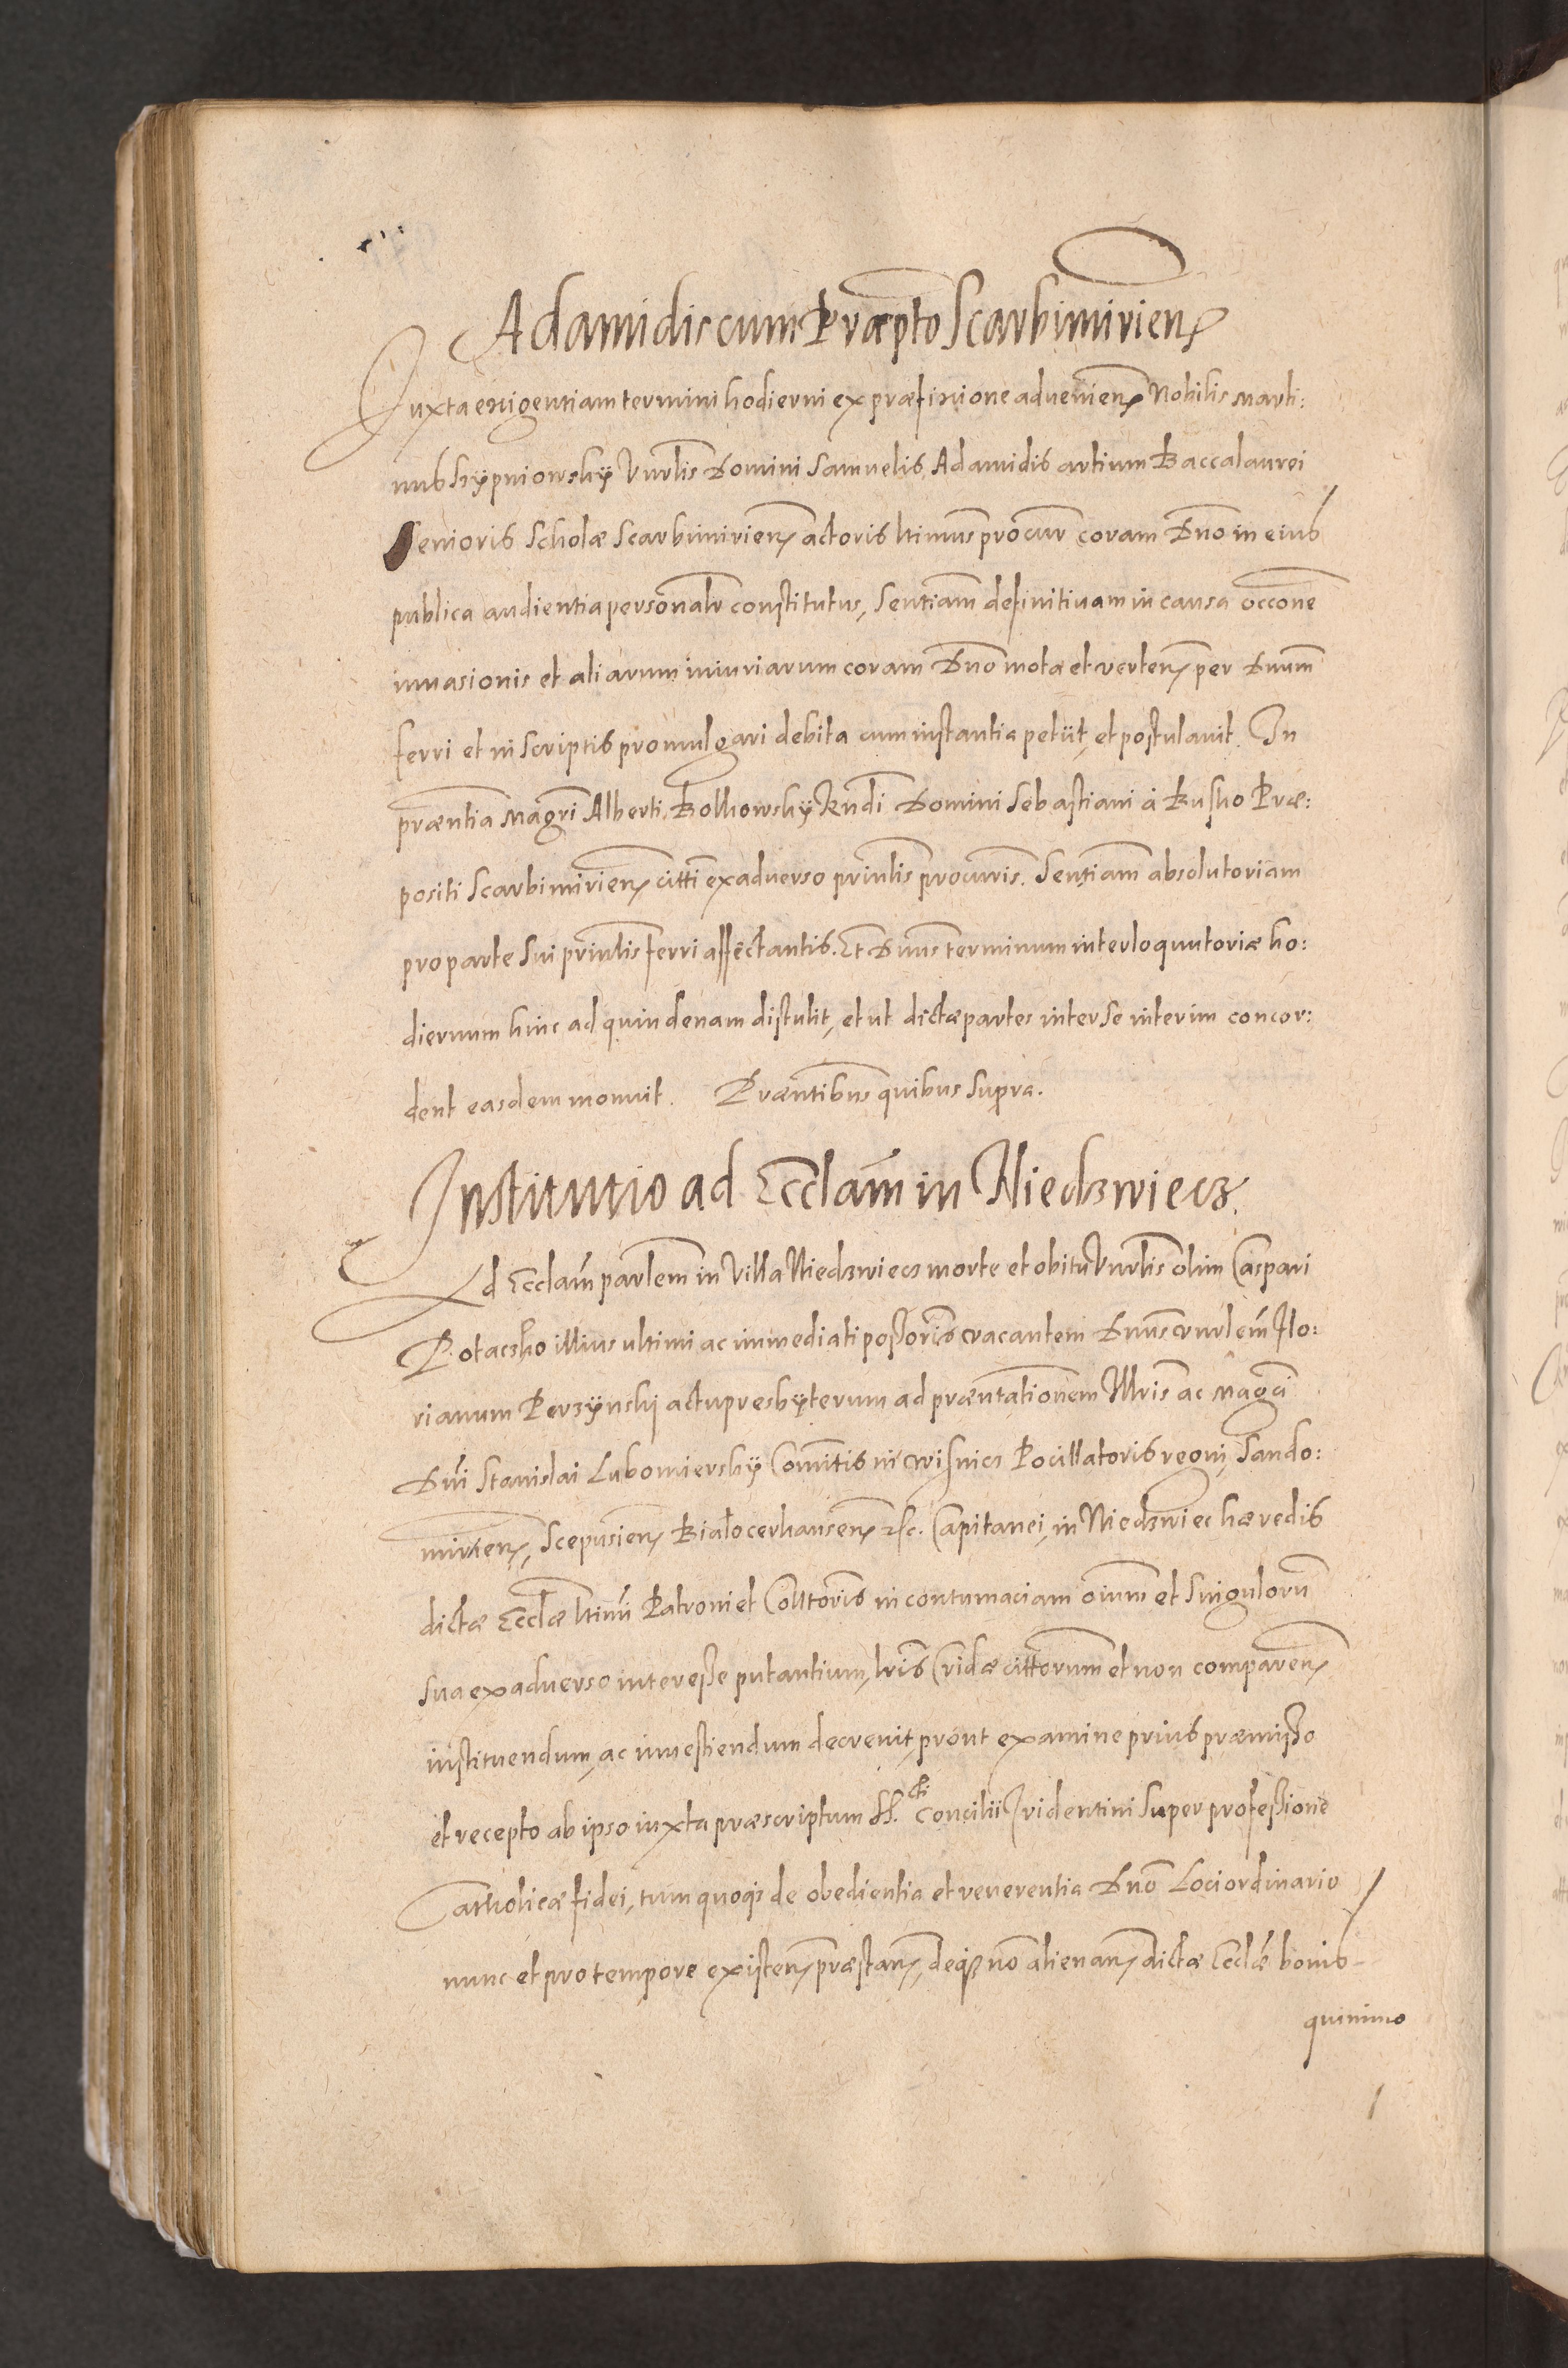 Adamidis cum Præpto Scarbimirien
Juxta exigentiam termini hodierni ex præfixione advenien Nobilis Marti:
nus Hypniowsky Vnrlis Domini Samuelis Adamidis artium Baccalaurei
Senioris Scholæ Scarbimirien actoris ltimus procur coram Dno in eius
publica audientia personalr constitutus, Sentiam definitiuam in causa occone
inuasionis et aliarum iniuriarum coram Dno motæ et verten per Dnum
ferri et in scriptis promulgari debita cum instantia petiit, et postulauit. In
præntia Magri Alberti Bolkowsky Rendi Domini Sebastiani à Busko Præ:
positi Scarbimirien citti ex adverso prinlis procuris. Sentiam absolutoriam
pro parte sui prinlis ferri affectantis. Et Dnus terminum interloquutoriæ ho:
diernum hinc ad quindenam distulit, et ut dictæ partes inter se interim concor:
dent easdem monuit. Præntibus quibus supra.
Institutio ad Ecclam in Niedzwiecz.
Ad Ecclam parlem in Villa Niedzwiecz morte et obitu Vnrlis olim Caspari
Potaczko illius ultimi ac immediati possoris vacantem Dnus vnrlem Flo:
rianum Perzynski actu presbyterum ad præntationem Illris ac Magci
Dni Stanislai Lubomiersky Comitis in Wisnicz Pocillatoris regni, Sando:
mirien, Scepusien Bialocerhausen etc. Capitanei, in Niedzwiec hæredis
dictæ Ecclæ ltimi Patroni et Colltoris in contumaciam oium et singulorum
sua ex adverso interesse putantium, lris Cridæ cittorum et non comparen
instituendum, ac inuestiendum decreuit, prout examine prius præmisso
et recepto ab ipso iuxta præscriptum SS.cti Concilii Tridentini super professione
Catholicæ fidei, tum quoque de obedientia et reuerentia Dno Loci ordinario
nunc et pro tempore existen præstan, deque no alienan dictæ Ecclæ bonis
quinimo